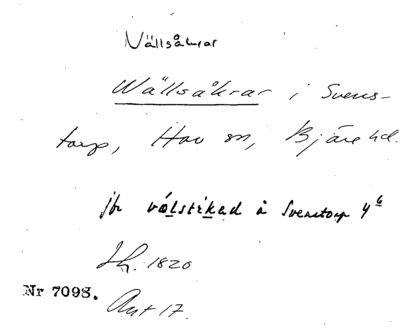 Vällsåkrar
Wällsåkrar i Svens-
torp, Hov sn, Bjäre hd.
jfr vålstikad å Svenstorp 4
Lh. 1820
Nr 7098.
Avt 17.